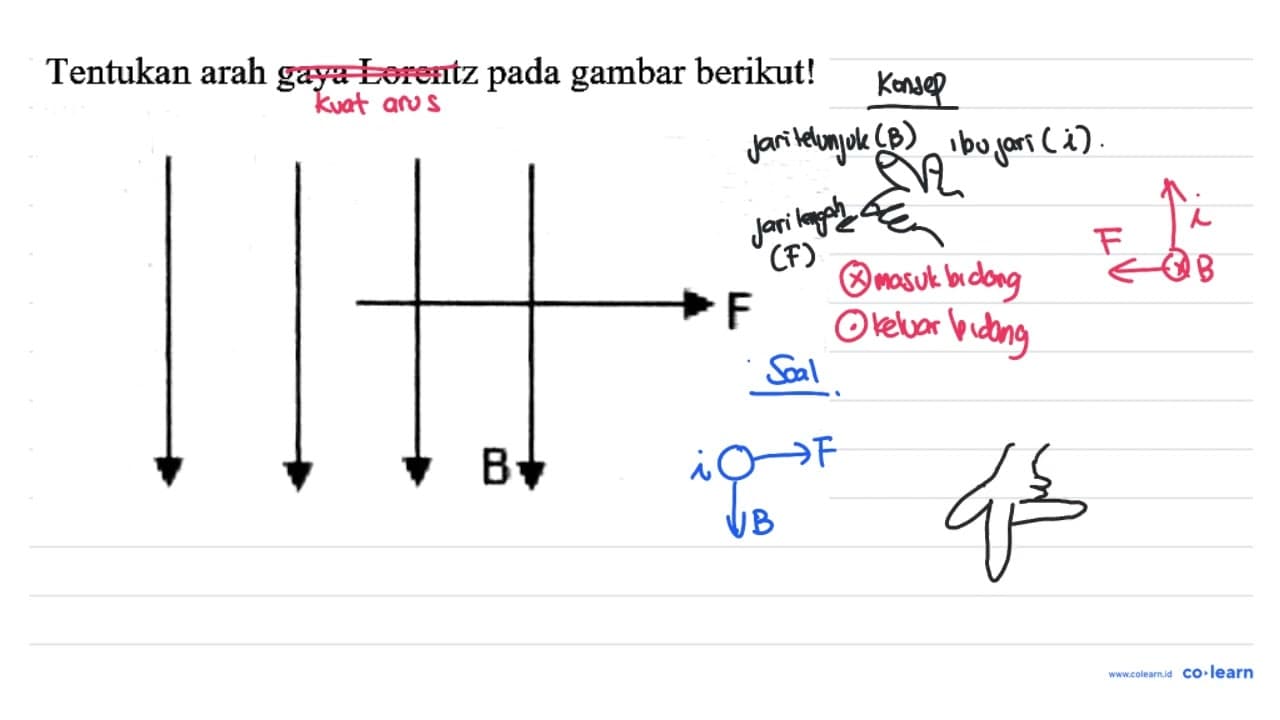 Tentukan arah gaya Lorentz pada gambar berikut!
kuat arus
Konsep
Jari telunjuk (B) ibu jari (i).
Jari tengah
(F)
F
i
B
masuk bidang
keluar bidang
F
B
Soal
i F
B
www.colearn.id co·learn